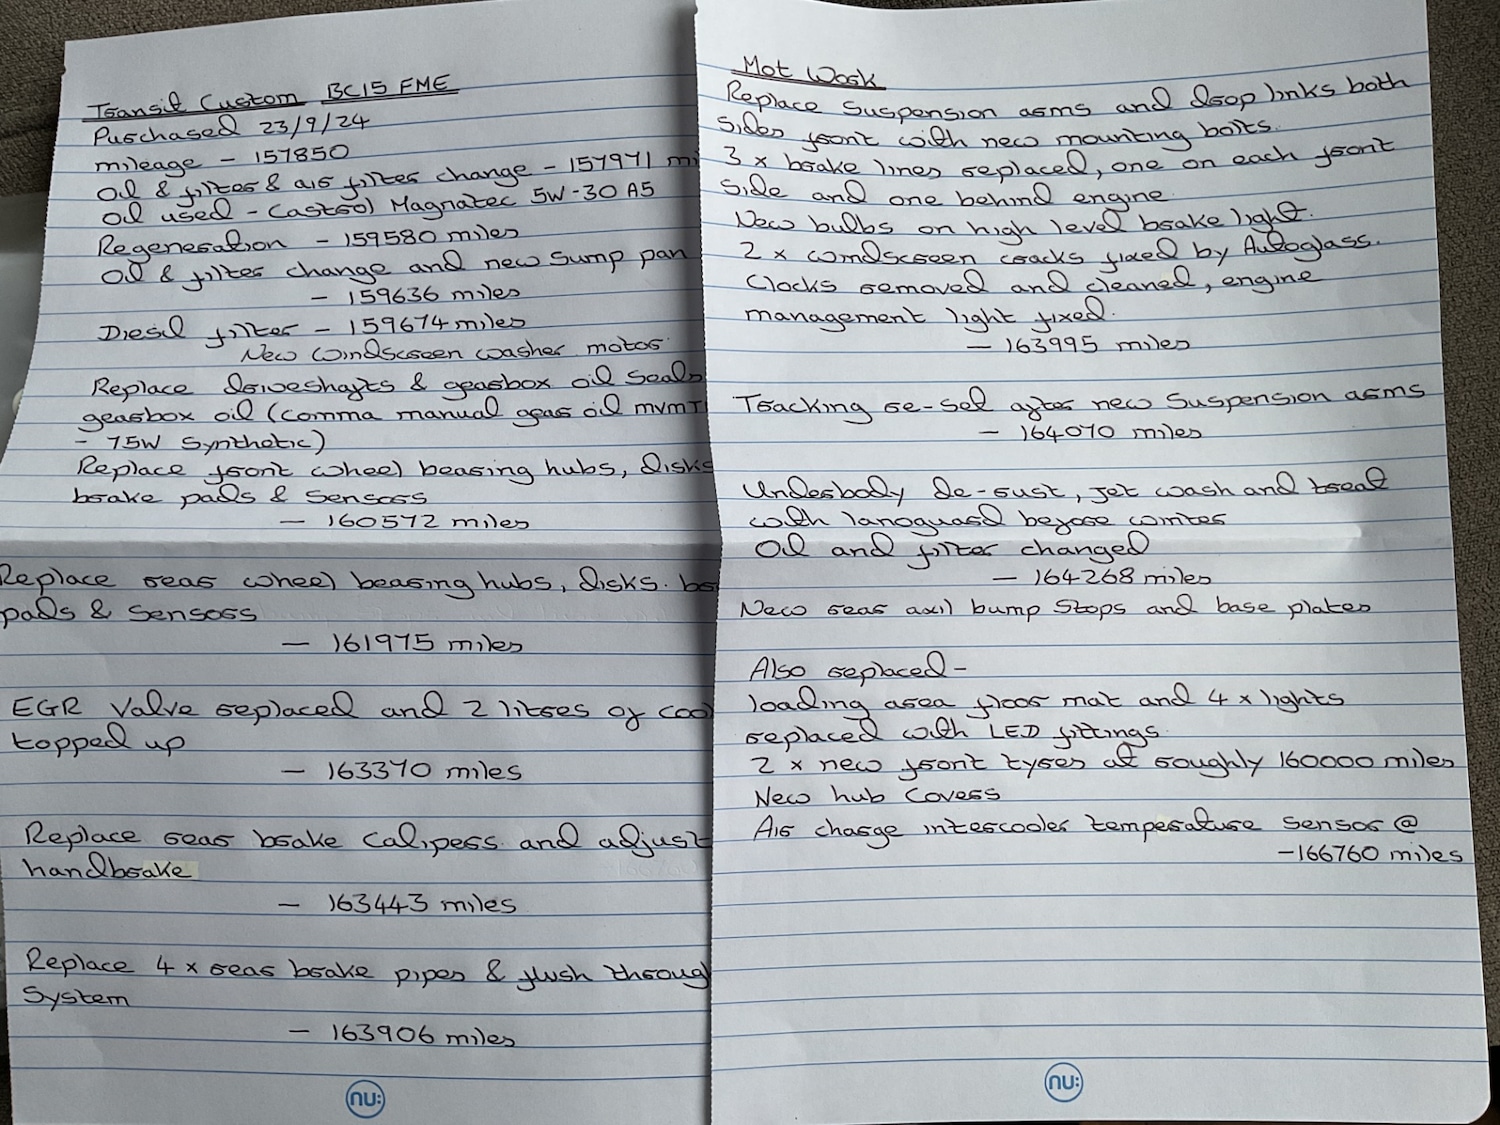 Transit Custom BC15 FME
Purchased 23/9/24
mileage - 157850
Oil & filter & air filter change - 157971 mi
Oil used - Castrol Magnatec 5W-30 A5
Regeneration - 159580 miles
Oil & filter change and new sump pan
- 159636 miles
Diesil filter - 159674 miles
New windscreen washer motor
Replace driveshafts & gearbox oil seals
gearbox oil (comma manual gear oil MVMT
- 75W Synthetic)
Replace front wheel bearing hubs, disks
brake pads & Sensors
- 160572 miles
Replace rear wheel bearing hubs, disks.
pads & Sensors
- 161975 miles
EGR Valve replaced and 2 litres of coo
topped up
- 163370 miles
Replace rear brake calipers and adjust
handbrake
- 163443 miles
Replace 4 x rear brake pipes & flush throug
System
- 163906 miles
nu:
Mot Work
Replace Suspension arms and drop links both
sides front with new mounting bolts.
3 x brake lines replaced, one on each front
side and one behind engine
New bulbs on high level brake light.
2 x windscreen cracks fixed by Autoglass.
Clocks removed and cleaned, engine
management light fixed.
- 163995 miles
Tracking re-set after new Suspension arms
- 164070 miles
Underbody de-rust, jet wash and treat
with lanoguard before winter
Oil and filter changed
- 164268 miles
New rear axil bump Stops and base plates
Also replaced -
loading area floor mat and 4 x lights
replaced with LED fittings
2 x new front tyres at roughly 160000 miles
New hub Covers
Air charge intercooler temperature sensor @
-166760 miles
nu: